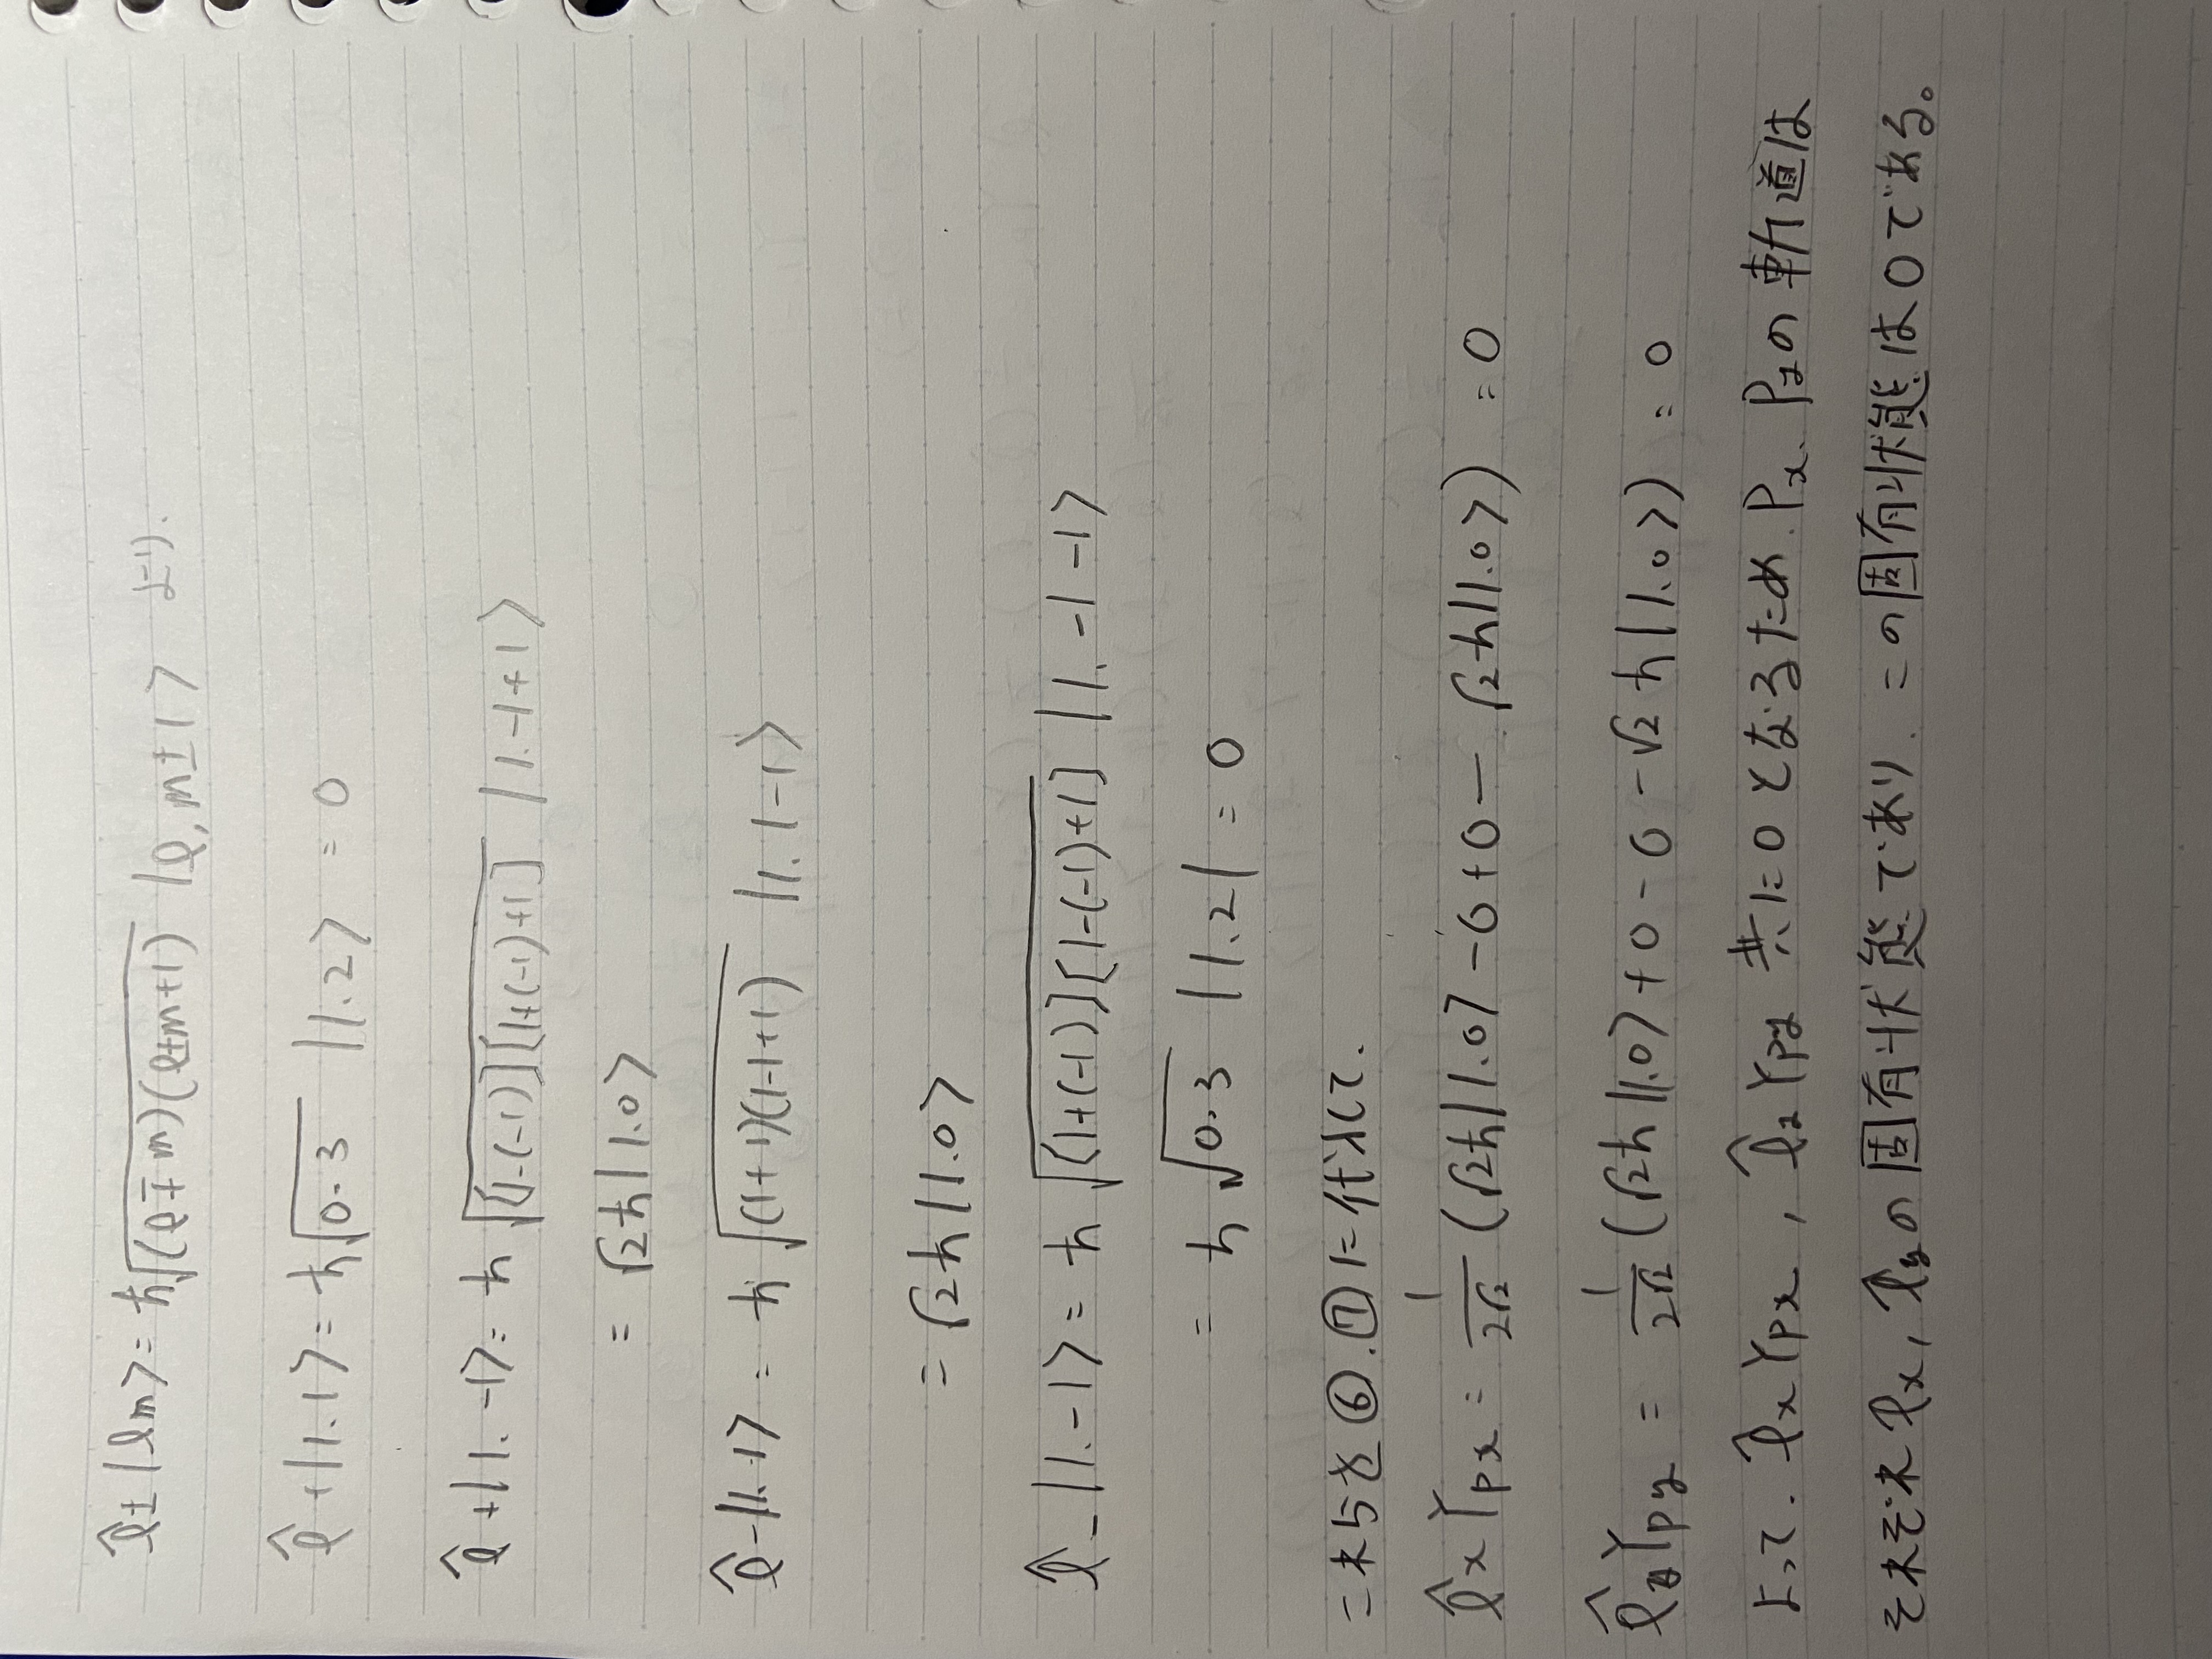 l̂± |lm> = ħ√(l∓m)(l±m+1) |l, m±1> より.
l̂+|1.1> = ħ√0·3 |1.2> = 0
l̂+|1.-1> = ħ√[1-(-1)][1+(-1)+1] |1.-1+1>
= √2ħ|1.0>
l̂-|1.1> = ħ√(1+1)(1-1+1) |1.1-1>
= √2ħ|1.0>
l̂-|1.-1> = ħ√[1+(-1)][1-(-1)+1] |1.-1-1>
= ħ√0·3 |1.2| = 0
これらを⑥.⑦に代入して.
l̂x Ypx = 1/2√2 (√2ħ|1.0> - 0 + 0 - √2ħ|1.0>) = 0
l̂y Ypy = 1/2√2 (√2ħ|1.0> + 0 - 0 - √2ħ|1.0>) = 0
よって. l̂x Ypx , l̂y Ypy 共に0となるため. Px. Pyの軌道は
それぞれ lx, l̂yの固有状態であり. この固有状態は0である。